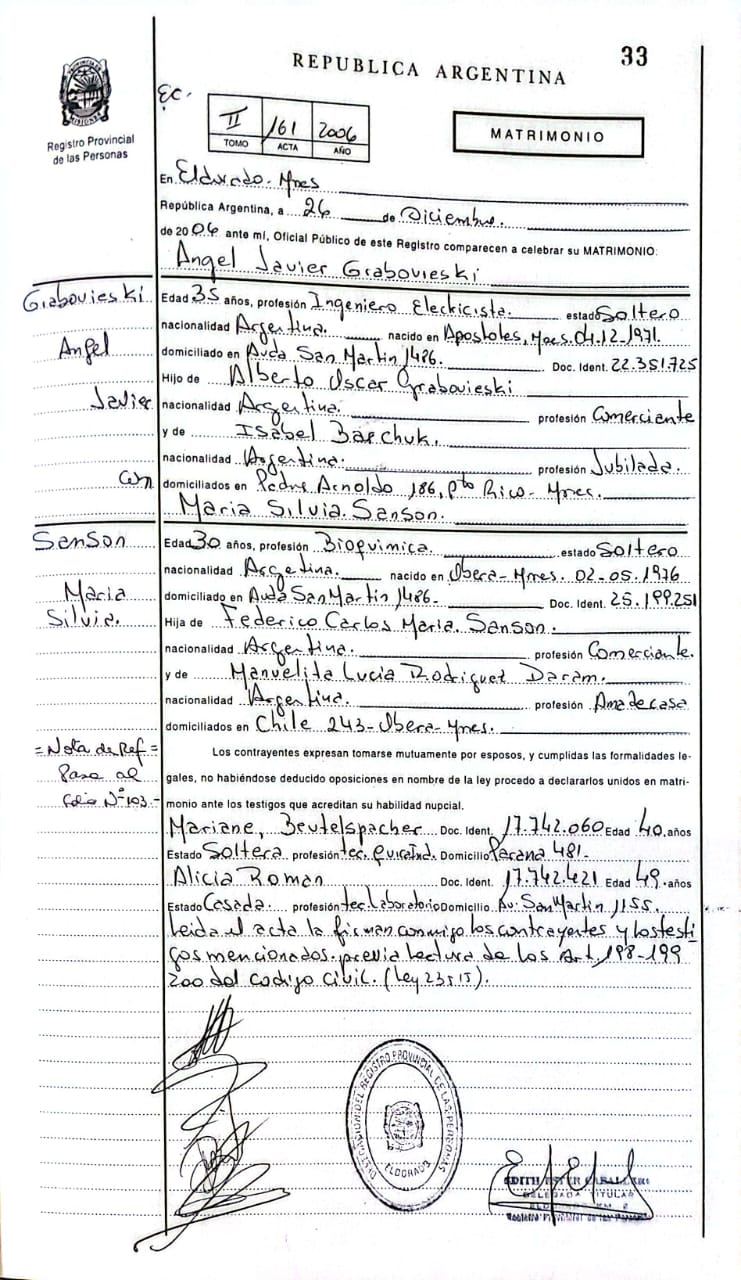 33
REPUBLICA ARGENTINA
Registro Provincial
de las Personas
EC.
II 161 2006
TOMO ACTA AÑO
MATRIMONIO
En Eldorado - Mnes
República Argentina, a 26 de Diciembre.
de 2006 ante mí, Oficial Público de este Registro comparecen a celebrar su MATRIMONIO:
Angel Javier Grabovieski
Grabovieski
Angel
Javier
con
Edad 35 años, profesión Ingeniero Electricista. estado Soltero
nacionalidad Argentina. nacido en Apostoles, Mnes. 04.12.1971.
domiciliado en Avda San Martin 1486. Doc. Ident. 22.351.725
Hijo de Alberto Oscar Grabovieski
nacionalidad Argentina. profesión Comerciante
y de Isabel Barchuk.
nacionalidad Argentina. profesión Jubilada.
domiciliados en Padre Arnoldo 186, Pto Rico - Mnes.
Maria Silvia Sanson.
Sanson
Maria
Silvia.
Edad 30 años, profesión Bioquimica. estado Soltero
nacionalidad Argentina. nacido en Obera - Mnes. 02-05-1976
domiciliado en Avda San Martin 1486. Doc. Ident. 25.199.251
Hija de Federico Carlos Maria Sanson.
nacionalidad Argentina. profesión Comerciante.
y de Manuelita Lucia Rodriguez Daram.
nacionalidad Argentina. profesión Ama de casa
domiciliados en Chile 243 - Obera - Mnes.
= Nota de Ref =
Pasa al
folio Nº 103.-
Los contrayentes expresan tomarse mutuamente por esposos, y cumplidas las formalidades le-
gales, no habiéndose deducido oposiciones en nombre de la ley procedo a declararlos unidos en matri-
monio ante los testigos que acreditan su habilidad nupcial.
Mariane, Beutelspacher Doc. Ident. 17.742.060 Edad 40 años
Estado Soltera profesión tec. Domicilio Parana 481.
Alicia Roman Doc. Ident. 17.742.421 Edad 49 años
Estado Casada. profesión tec. Laboratorio Domicilio Av. San Martin 1155.
Leida el acta la firman conmigo los contrayentes y los testi
gos mencionados. previa lectura de los Art. 198-199
200 del codigo civil. (Ley 23515).
DELEGACION DEL REGISTRO PROVINCIAL DE LAS PERSONAS
ELDORADO
EDITH
DELEGADA TITULAR
Registro Provincial de las Personas